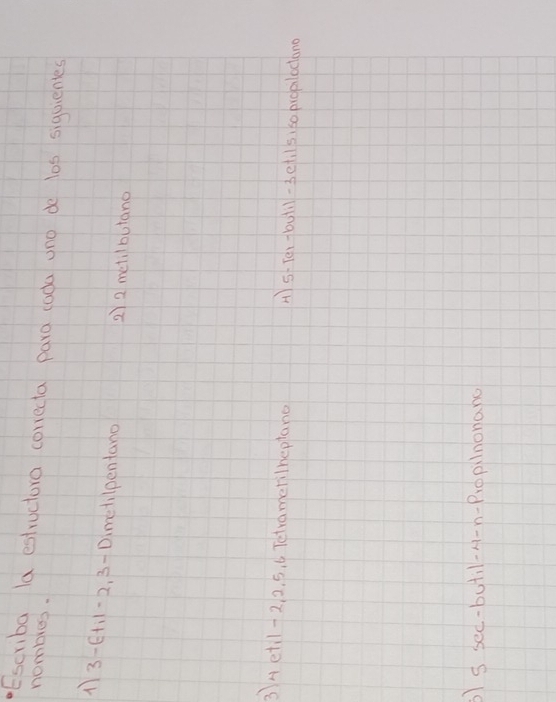 • Escriba la estructura correcta para cada uno de los siguientes
nombres.
1) 3-Etil-2,3-Dimetilpentano
2) 2 metilbutano
3) 4 etil-2,2,5,6 Tetrametilheptano
4) 5-Ter-butil-3etil5isopropiloctano
5) 5 sec-butil-4-n-Propilnonano